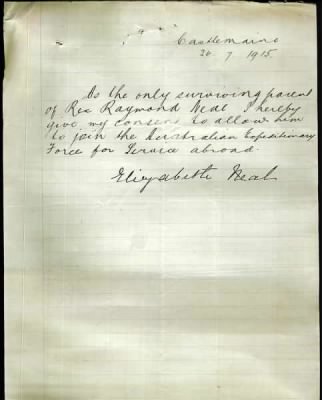 Castlemaine
20. 7 1915.
As the only surviving parent
of Rex Raymond Neal I hereby
give my consent to allow him
to join the Australian Expeditionary
Force for Service abroad.
Elizabeth Neal